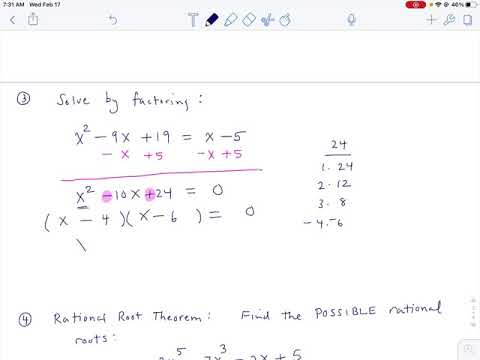 7:31 AM Wed Feb 17
46%
③ Solve by factoring :
x² - 9x + 19 = x - 5
- x + 5 - x + 5
x² - 10x + 24 = 0
( x - 4 )( x - 6 ) = 0
\
24
1 . 24
2 . 12
3 . 8
- 4 . - 6
④ Rational Root Theorem : Find the POSSIBLE rational
roots :
x⁵ 7x³ - 2x + 5